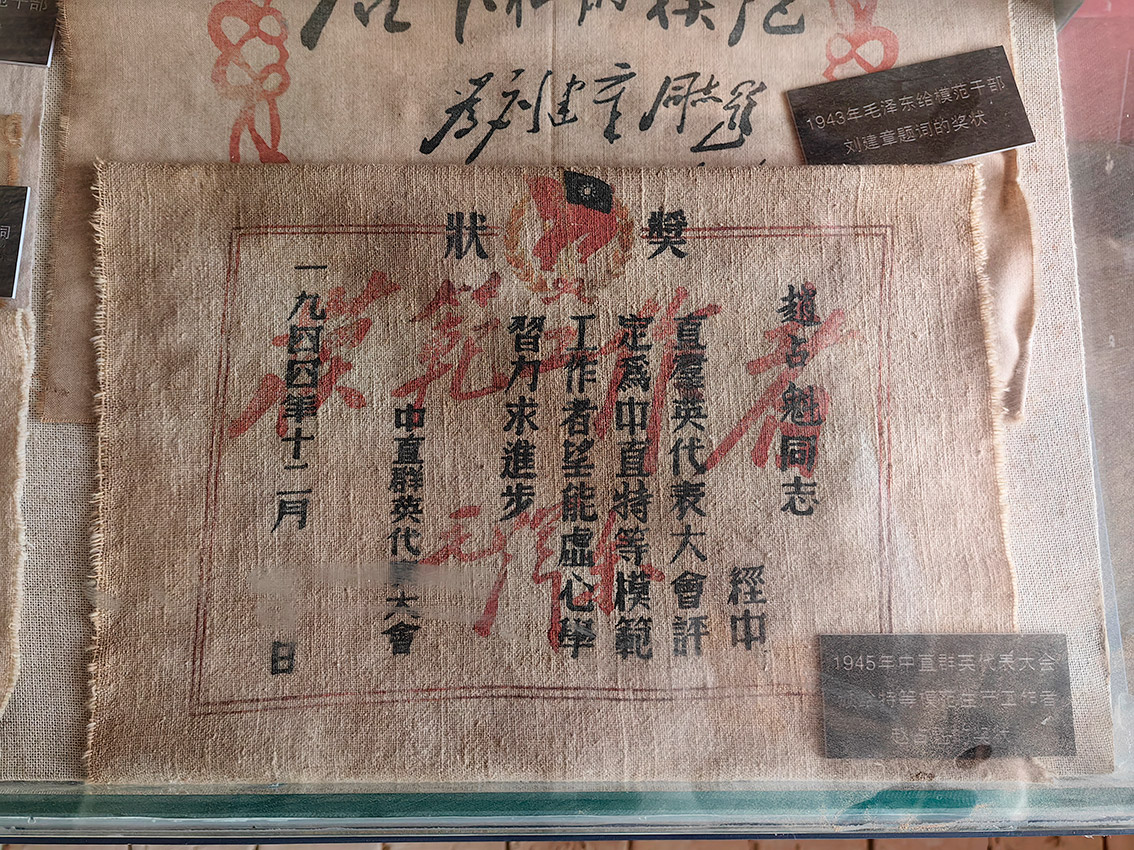 模范
为刘建章同志题
1943年毛泽东给模范干部
刘建章题词的奖状
奬状
趙占魁同志
經中
直羣英代表大會評
定爲中直特等模範
工作者望能虛心學
習力求進步
中直群英代 大會
一九四四年十二月
日
模範工作者
毛澤东
1945年中直群英代表大会
特等模范生产工作者